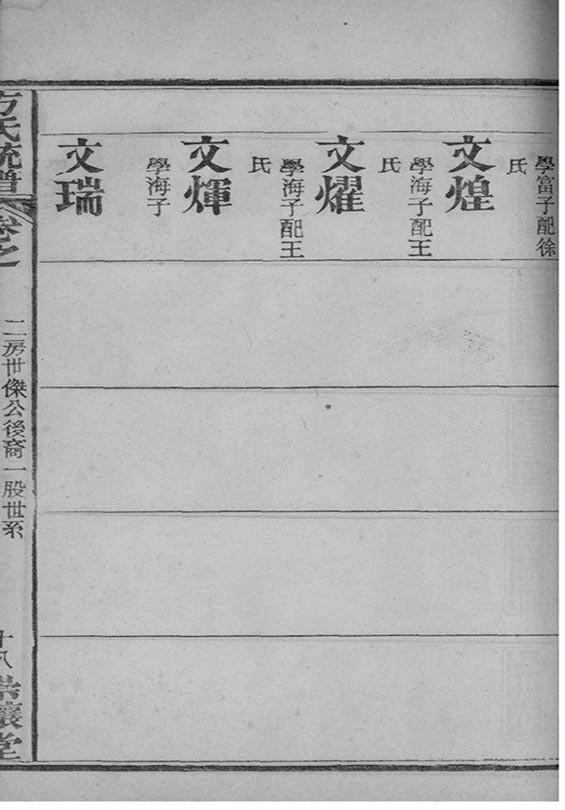 學富子配徐
氏
文煌
學海子配王
氏
文燿
學海子配王
氏
文煇
學海子
文瑞
方氏統譜
卷之
二房世傑公後裔一股世系
十八
堂